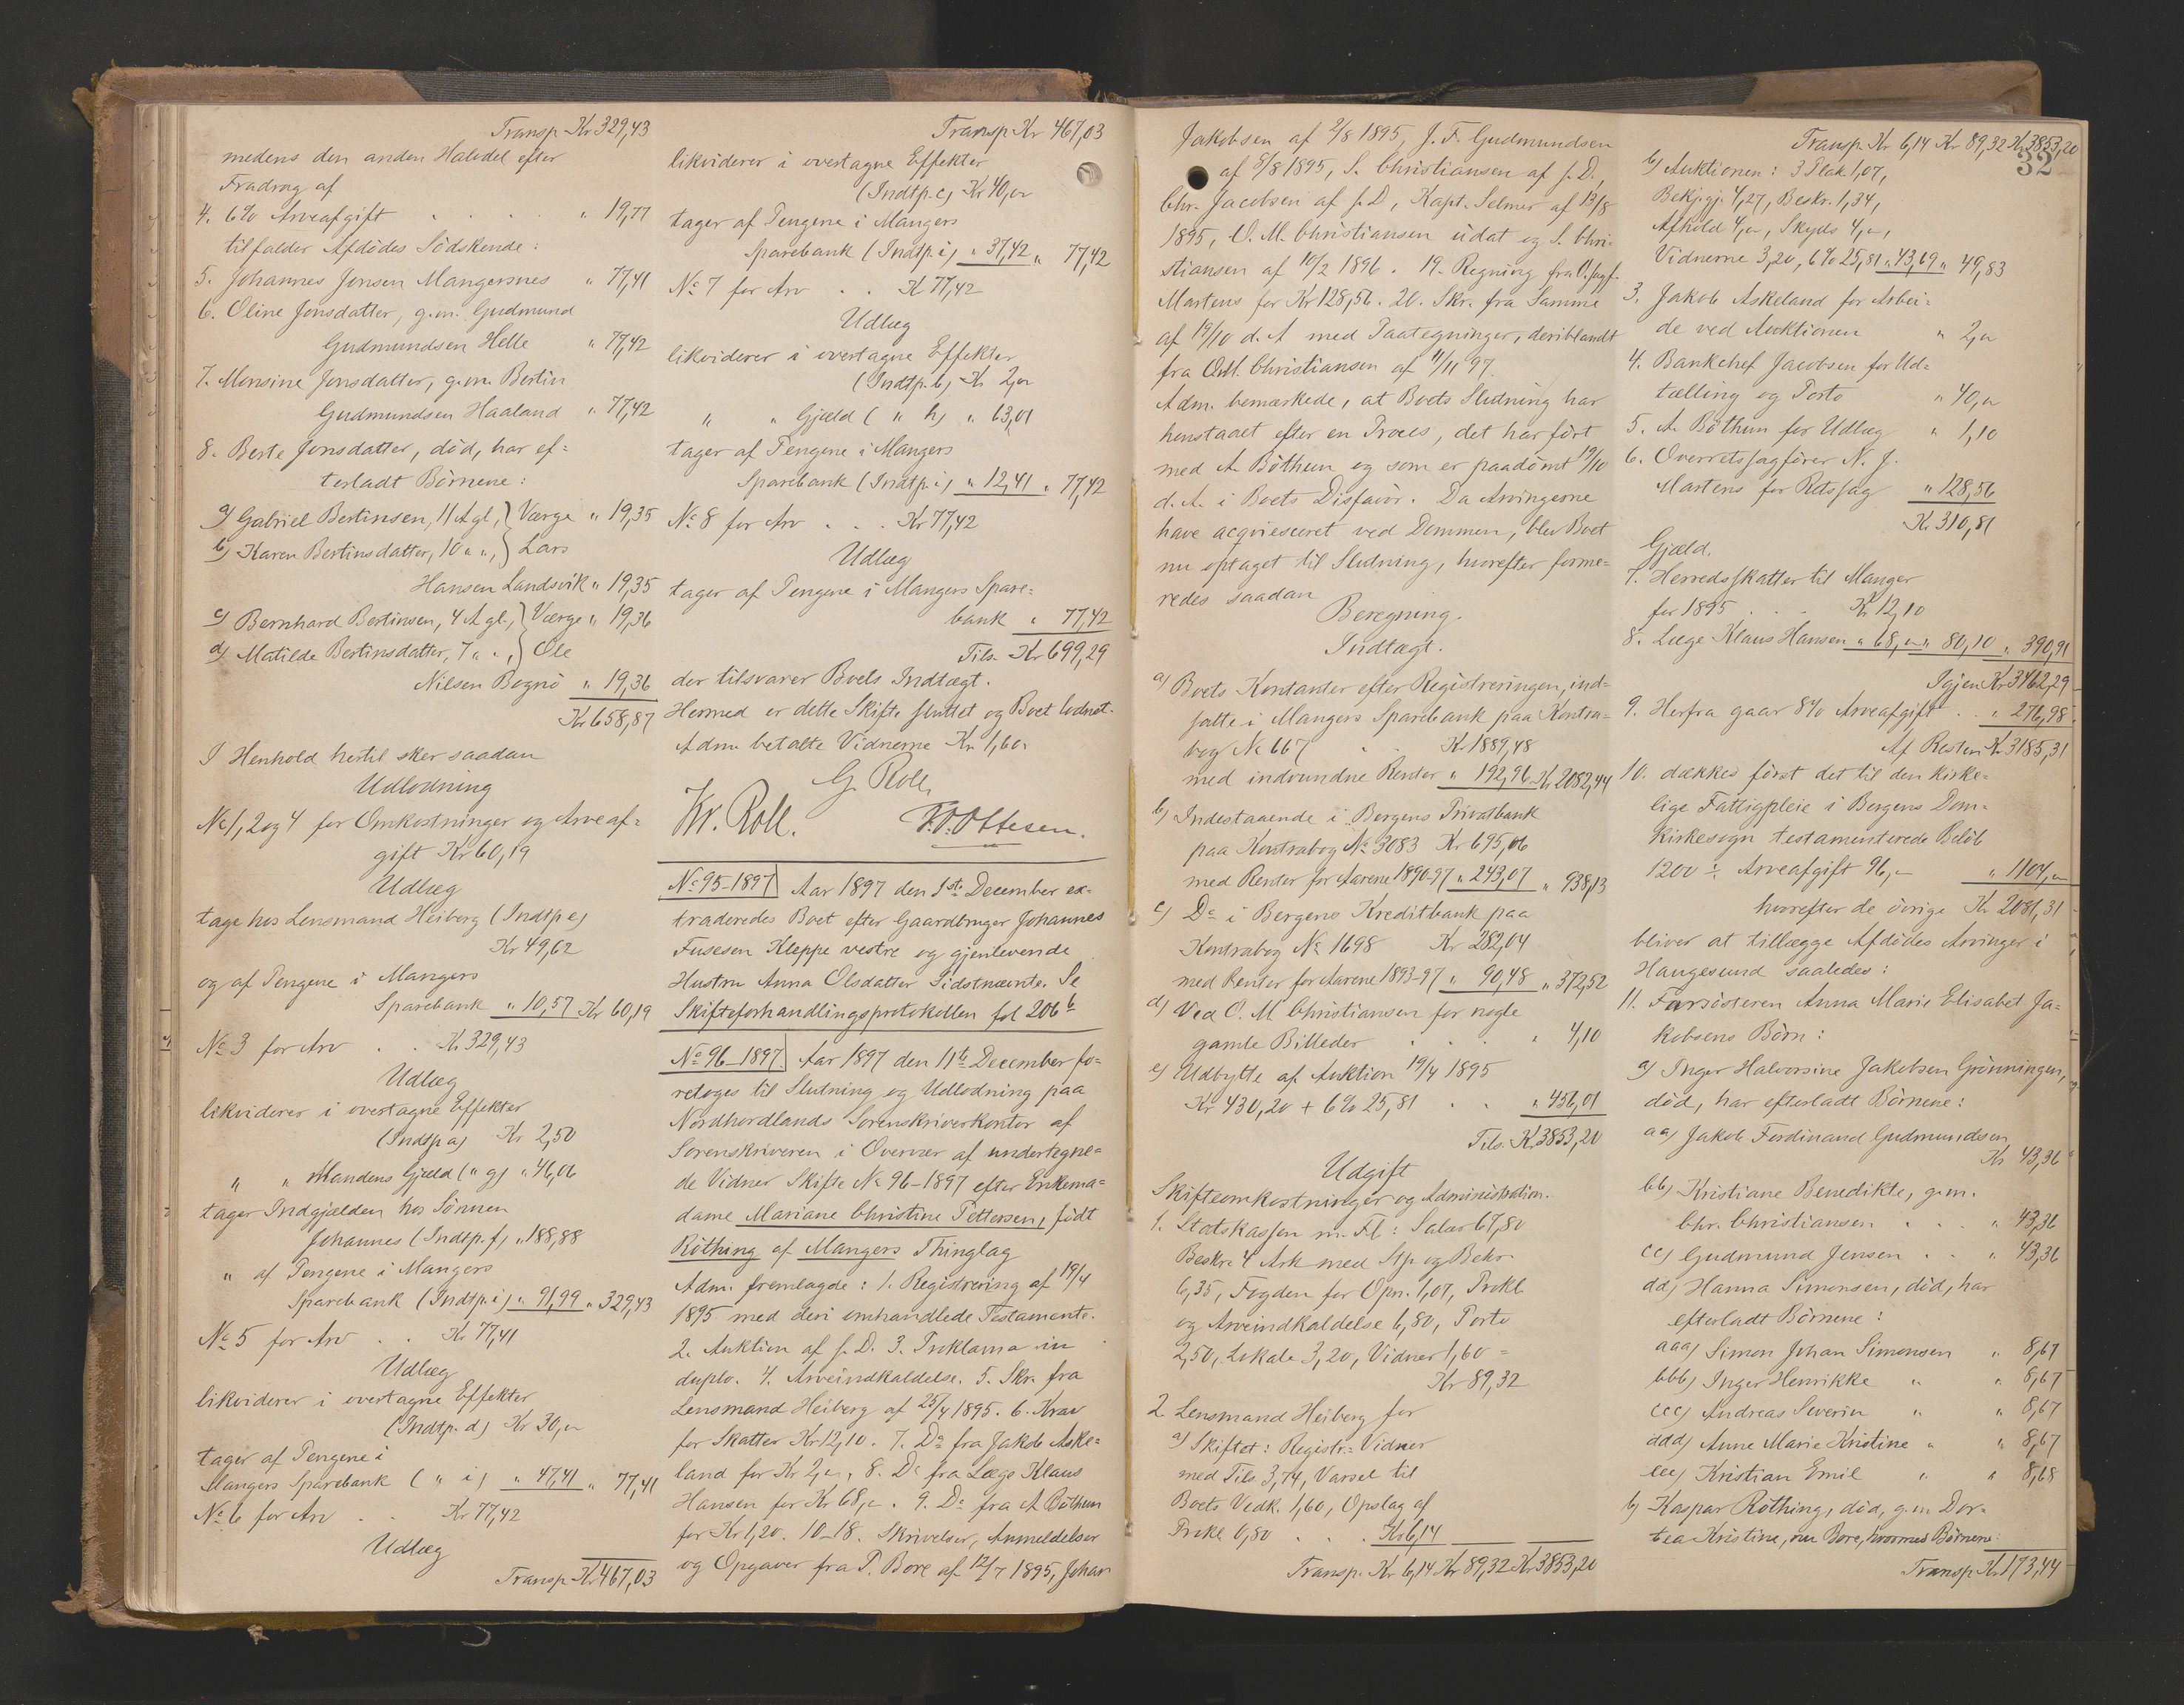 Transp. Kr 329,43
medens den anden Halvdel efter
Fradrag af
4. 6% Arveafgift . . . . " 19,77
tilfalder Afdødes Södskende:
5. Johannes Jonsen Mangersnes " 77,41
6. Oline Jonsdatter, g.m. Gudmund
Gudmundsen Helle " 77,42
7. Monsine Jonsdatter, g.m. Bertin
Gudmundsen Haaland " 77,42
8. Berte Jonsdatter, död, har ef=
terladt Börnene:
a) Gabriel Bertinsen, 11 A gl, } Værge " 19,35
b) Karen Bertinsdatter, 10 " ", } Lars
Hansen Landsvik " 19,35
c) Bernhard Bertinsen, 4 A gl, } Værge " 19,36
d) Matilde Bertinsdatter, 7 " ", } Ole
Nilsen Bognö " 19,36
Kr 658,87
I Henhold hertil sker saadan
Udlodning
No 1, 2 og 4 for Omkostninger og Arveaf=
gift Kr 60,19
Udlæg
tages hos Lensmand Heiberg (Indtp e)
Kr 49,62
og af Pengene i Mangers
Sparebank " 10,57 Kr 60,19
No 3 for Arv . . Kr 329,43
Udlæg
likviderer i overtagne Effekter
(Indtp a) Kr 2,50
" " Mandens Gjæld (" g) " 46,06
tager Indgjælden hos Sönnen
Johannes (Indtp. f) " 188,88
" af Pengene i Mangers
Sparebank (Indtp. i) " 91,99 " 329,43
No 5 for Arv . . Kr 77,41
Udlæg
likviderer i overtagne Effekter
(Indtp. d) Kr 30,00
tager af Pengene i
Mangers Sparebank ( " i) " 47,41 " 77,41
No 6 for Arv . . Kr 77,42
Udlæg
Transp. Kr 467,03
Transp Kr 467,03
likviderer i overtagne Effekter
(Indtp. c) Kr 40,00
tager af Pengene i Mangers
Sparebank (Indtp. i) " 37,42 " 77,42
No 7 for Arv . . Kr 77,42
Udlæg
likviderer i overtagne Effekter
(Indtp. b) Kr 2,00
" " Gjæld ( " h) " 63,01
tager af Pengene i Mangers
Sparebank (Indtp. i) " 12,41 " 77,42
No 8 for Arv . . . Kr 77,42
Udlæg
tager af Pengene i Mangers Spare=
bank " 77,42
Tils. Kr 699,29
der tilsvarer Boets Indtægt.
Hermed er dette Skifte sluttet og Boet lodnet.
Adm. betalte Vidnerne Kr. 1,60.
G. Roll,
Kr. Roll. F.O. Ottesen.
No 95-1897 Aar 1897 den 1ste December ex=
traderedes Boet efter Gaardbruger Johannes
Fusesen Kleppe vestre og gjenlevende
Hustru Anna Olsdatter Sidstnævnte. Se
Skifteforhandlingsprotokollen fol 206 b
No 96-1897. Aar 1897 den 11te December fo=
retoges til Slutning og Udlodning paa
Nordhordlands Sorenskriverkontor af
Sorenskriveren i Overvær af undertegne=
de Vidner Skifte No 96-1897 efter Enkema=
dame Mariane Christine Pettersen, födt
Röthing af Mangers Thinglag
Adm. fremlagde: 1. Registrering af 19/4
1895 med deri omhandlede Testamente.
2. Auktion af s. D. 3. Proklama in
duplo. 4. Arveindkaldelse. 5. Skr. fra
Lensmand Heiberg af 25/4 1895. 6. Krav
for Skatter Kr 12,10. 7. Do fra Jakob Aske=
land for Kr 2,00. 8. Do fra Læge Klaus
Hansen for Kr 68,00. 9. Do fra A. Böthun
for Kr 1,20. 10-18. Skrivelser, Anmeldelser
og Opgaver fra P. Bore af 12/7 1895, Johan
Jakobsen af 2/8 1895, J. F. Gudmundsen
af 8/8 1895, S. Christiansen af s. D.,
Chr. Jacobsen af s. D, Kapt. Selmer af 13/8
1895, O. M. Christiansen udat og S. Chri=
stiansen af 10/2 1896. 19. Regning fra O.sagf.
Martens for Kr 128,56. 20. Skr. fra Samme
af 19/10 d. A med Paategninger, deriblandt
fra O.M. Christiansen af 11/11 97.
Adm. bemærkede, at Boets Slutning har
henstaaet efter en Proces, det har fört
med A. Böthun og som er paadömt 19/10
d. A. i Boets Disfavör. Da Arvingerne
have acqviesceret ved Dommen, blev Boet
nu optaget til Slutning, hvorefter forme=
redes saadan
Beregning.
Indtægt.
a) Boets Kontanter efter Registreringen, ind=
satte i Mangers Sparebank paa Kontra=
bog No 667 . . Kr 1889,48
med indvundne Renter " 192,96 Kr 2082,44
b) Indestaaende i Bergens Privatbank
paa Kontrabog No 3083 Kr 695,06
med Renter for Aarene 1890-97 " 243,07 " 938,13
c) Do i Bergens Kreditbank paa
Kontrabog No 1698 Kr 282,04
med Renter for Aarene 1893-97 " 90,48 " 372,52
d) Ved O. M Christiansen for nogle
gamle Billeder . . . . " 4,10
e) Udbytte af Auktion 19/4 1895
Kr 430,20 + 6% 25,81 . . " 456,01
Tils. Kr 3853,20
Udgift
Skifteomkostninger og Administration.
1. Statskassen m. Fl: Salær 67,80
Beskr. 4 Ark med Stp og Bekr.
6,35, Fogden for Opn. 1,07, Prokl.
og Arveindkaldelse 6,80, Porto
2,50, Lokale 3,20, Vidner 1,60 =
Kr 89,32
2. Lensmand Heiberg for
a) Skiftet: Registr: Vidner
med Tils. 3,74, Varsel til
Boets Vedk. 1,60, Opslag af
Prokl 0,80 . . . Kr 6,14
Transp. Kr 6,14 Kr 89,32 Kr 3853,20
Transp. Kr 6,14 Kr 89,32 Kr 3853,20
32
b) Auktionen: 3 Plak. 1,07,
Bekj.gj. 4,27, Beskr. 1,34,
Afhold 4,00, Skyds 4,00,
Vidnerne 3,20, 6% 25,81 " 43,69 " 49,83
3. Jakob Askeland for Arbei=
de ved Auktionen " 2,00
4. Bankchef Jacobsen for Ud=
tælling og Porto " 40,00
5. A. Böthun for Udlæg " 1,10
6. Overretssagförer N. J.
Martens for Retssag " 128,56
Kr. 310,81
Gjæld.
7. Herredsskatter til Manger
for 1895 . . . Kr 12,10
8. Læge Klaus Hansen " 68,00 " 80,10 " 390,91
Igjen Kr 3462,29
9. Herfra gaar 8% Arveafgift . . " 276,98
Af Resten Kr 3185,31
10. dækkes först det til den kirke=
lige Fattigpleie i Bergens Dom=
kirkesogn testamenterede Belöb
1200 ÷ Arveafgift 96,- " 1104,-
hvorefter de övrige Kr 2081,31
bliver at tillægge Afdödes Arvinger i
Haugesund saaledes:
11. Farsösteren Anna Marie Elisabet Ja=
kobsens Börn:
a) Inger Halvorsine Jakobsen Grönningen,
död, har efterladt Börnene:
aa) Jakob Ferdinand Gudmundsen
Kr 43,36
bb) Kristiane Benedikte, g.m.
Chr. Christiansen . . . " 43,36
cc) Gudmund Jensen . . " 43,36
dd) Hanna Simonsen, död, har
efterladt Börnene:
aaa) Simon Johan Simonsen " 8,67
bbb) Inger Henrikke " " 8,67
ccc) Andreas Severin " " 8,67
ddd) Anne Marie Kristine " " 8,67
eee) Kristian Emil " " 8,68
b) Kaspar Röthing, död, g.m Dor=
tea Kristine, nu Bore, hvormed Börnene:
Transp. Kr 173,44